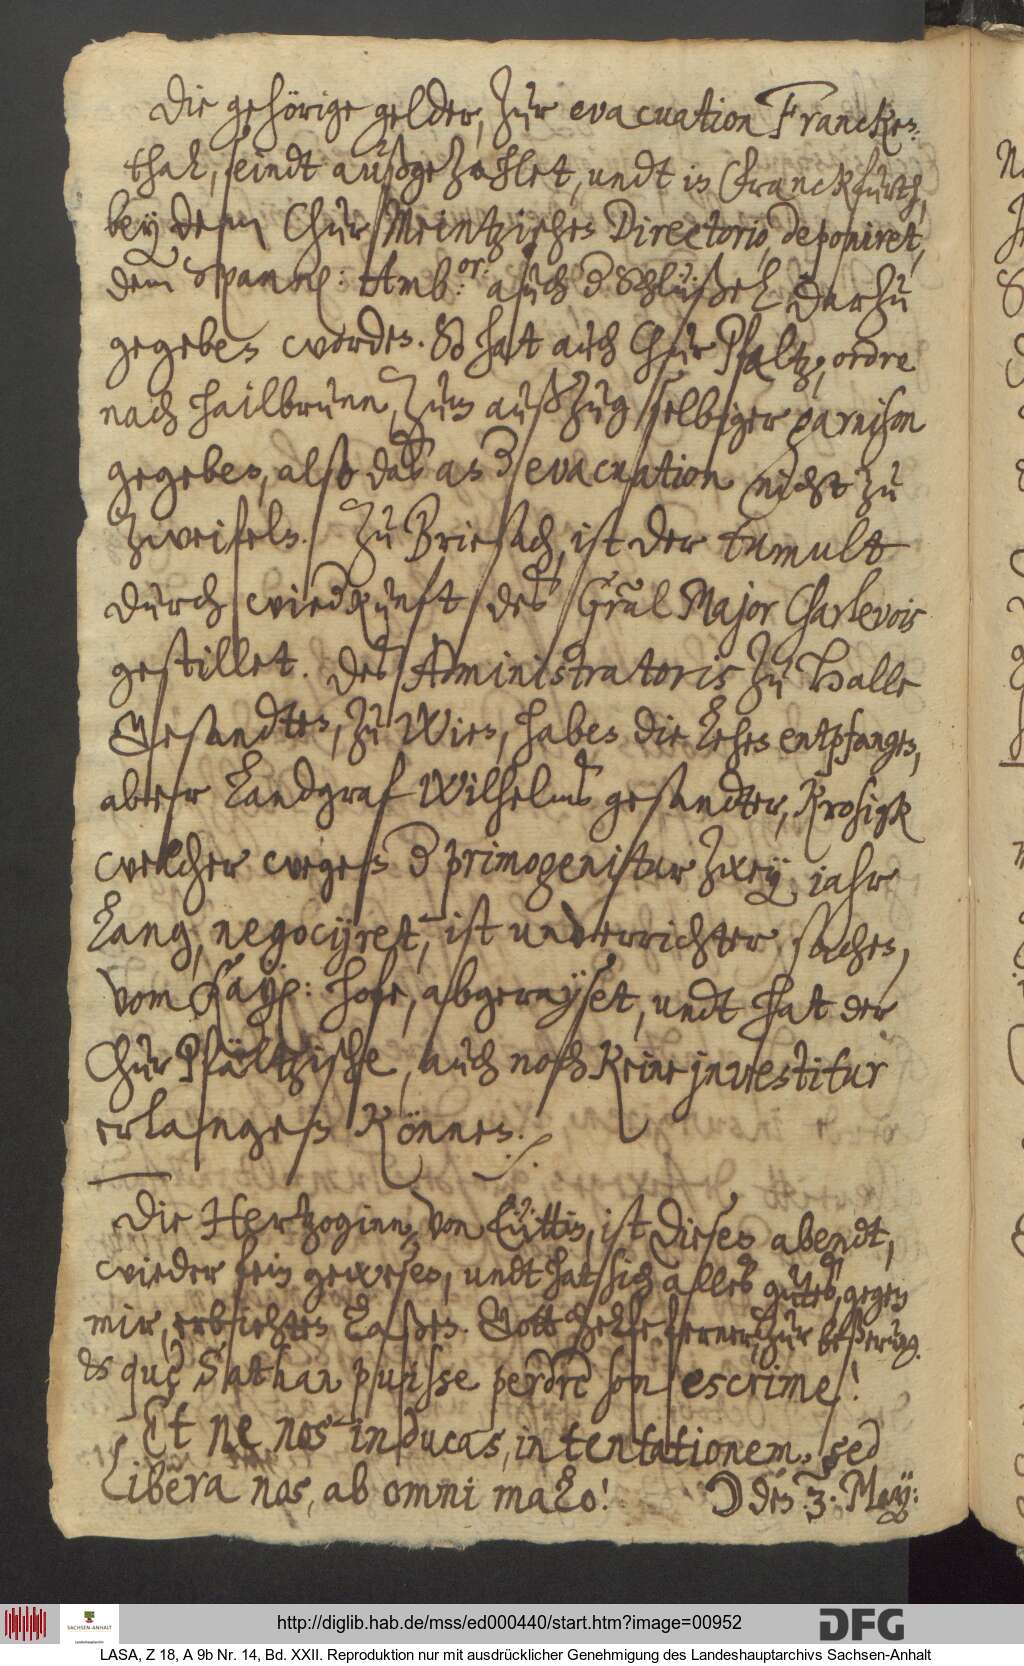 Die gehörige gelder, zur evacuation Francken-
thal, seindt außgezahlet, undt in Franckfurth,
bey dem Chur Meintzischen Directorio, deponiret,
dem Spannl: Amb:or auch d Schlüßel darzu
gegeben worden. So hat auch Chur Pfaltz, ordre
nach Hailbrunn, zum außzug selbiger garnison
gegeben, also das an d evacuation nicht zu
zweifeln. Zu Briesach, ist der tumult
durch wiedkunft des Gral Major Charlevois
gestillet. Des Administratoris zu Halle
Gesandten, zu Wien, haben die Lehen entpfangen,
aber Landgraf Wilhelms gesandter, Krosigk
welcher wegen d primogenitur zwey jahr
Lang, negocijret, ist unverrichter sachen,
vom Kayl: hofe, abgerayset, undt hat der
Chur Pfältzische, auch noch keine investitur
erlangen können.
Die Hertzoginn, von Lüttin, ist diesen abendt,
wieder hein gewesen, undt hat sich alles gutes, gegen
mir, erbiehten Laßen. Gott helfe ferner, zur beßerung.
& que Sathan puisse perdre son escrime!
Et ne nos inducas, in tentationem, sed
Libera nos, ab omni malo! ☽ den 3. May:
http://diglib.hab.de/mss/ed000440/start.htm?image=00952
SACHSEN-ANHALT
DFG
LASA, Z 18, A 9b Nr. 14, Bd. XXII. Reproduktion nur mit ausdrücklicher Genehmigung des Landeshauptarchivs Sachsen-Anhalt